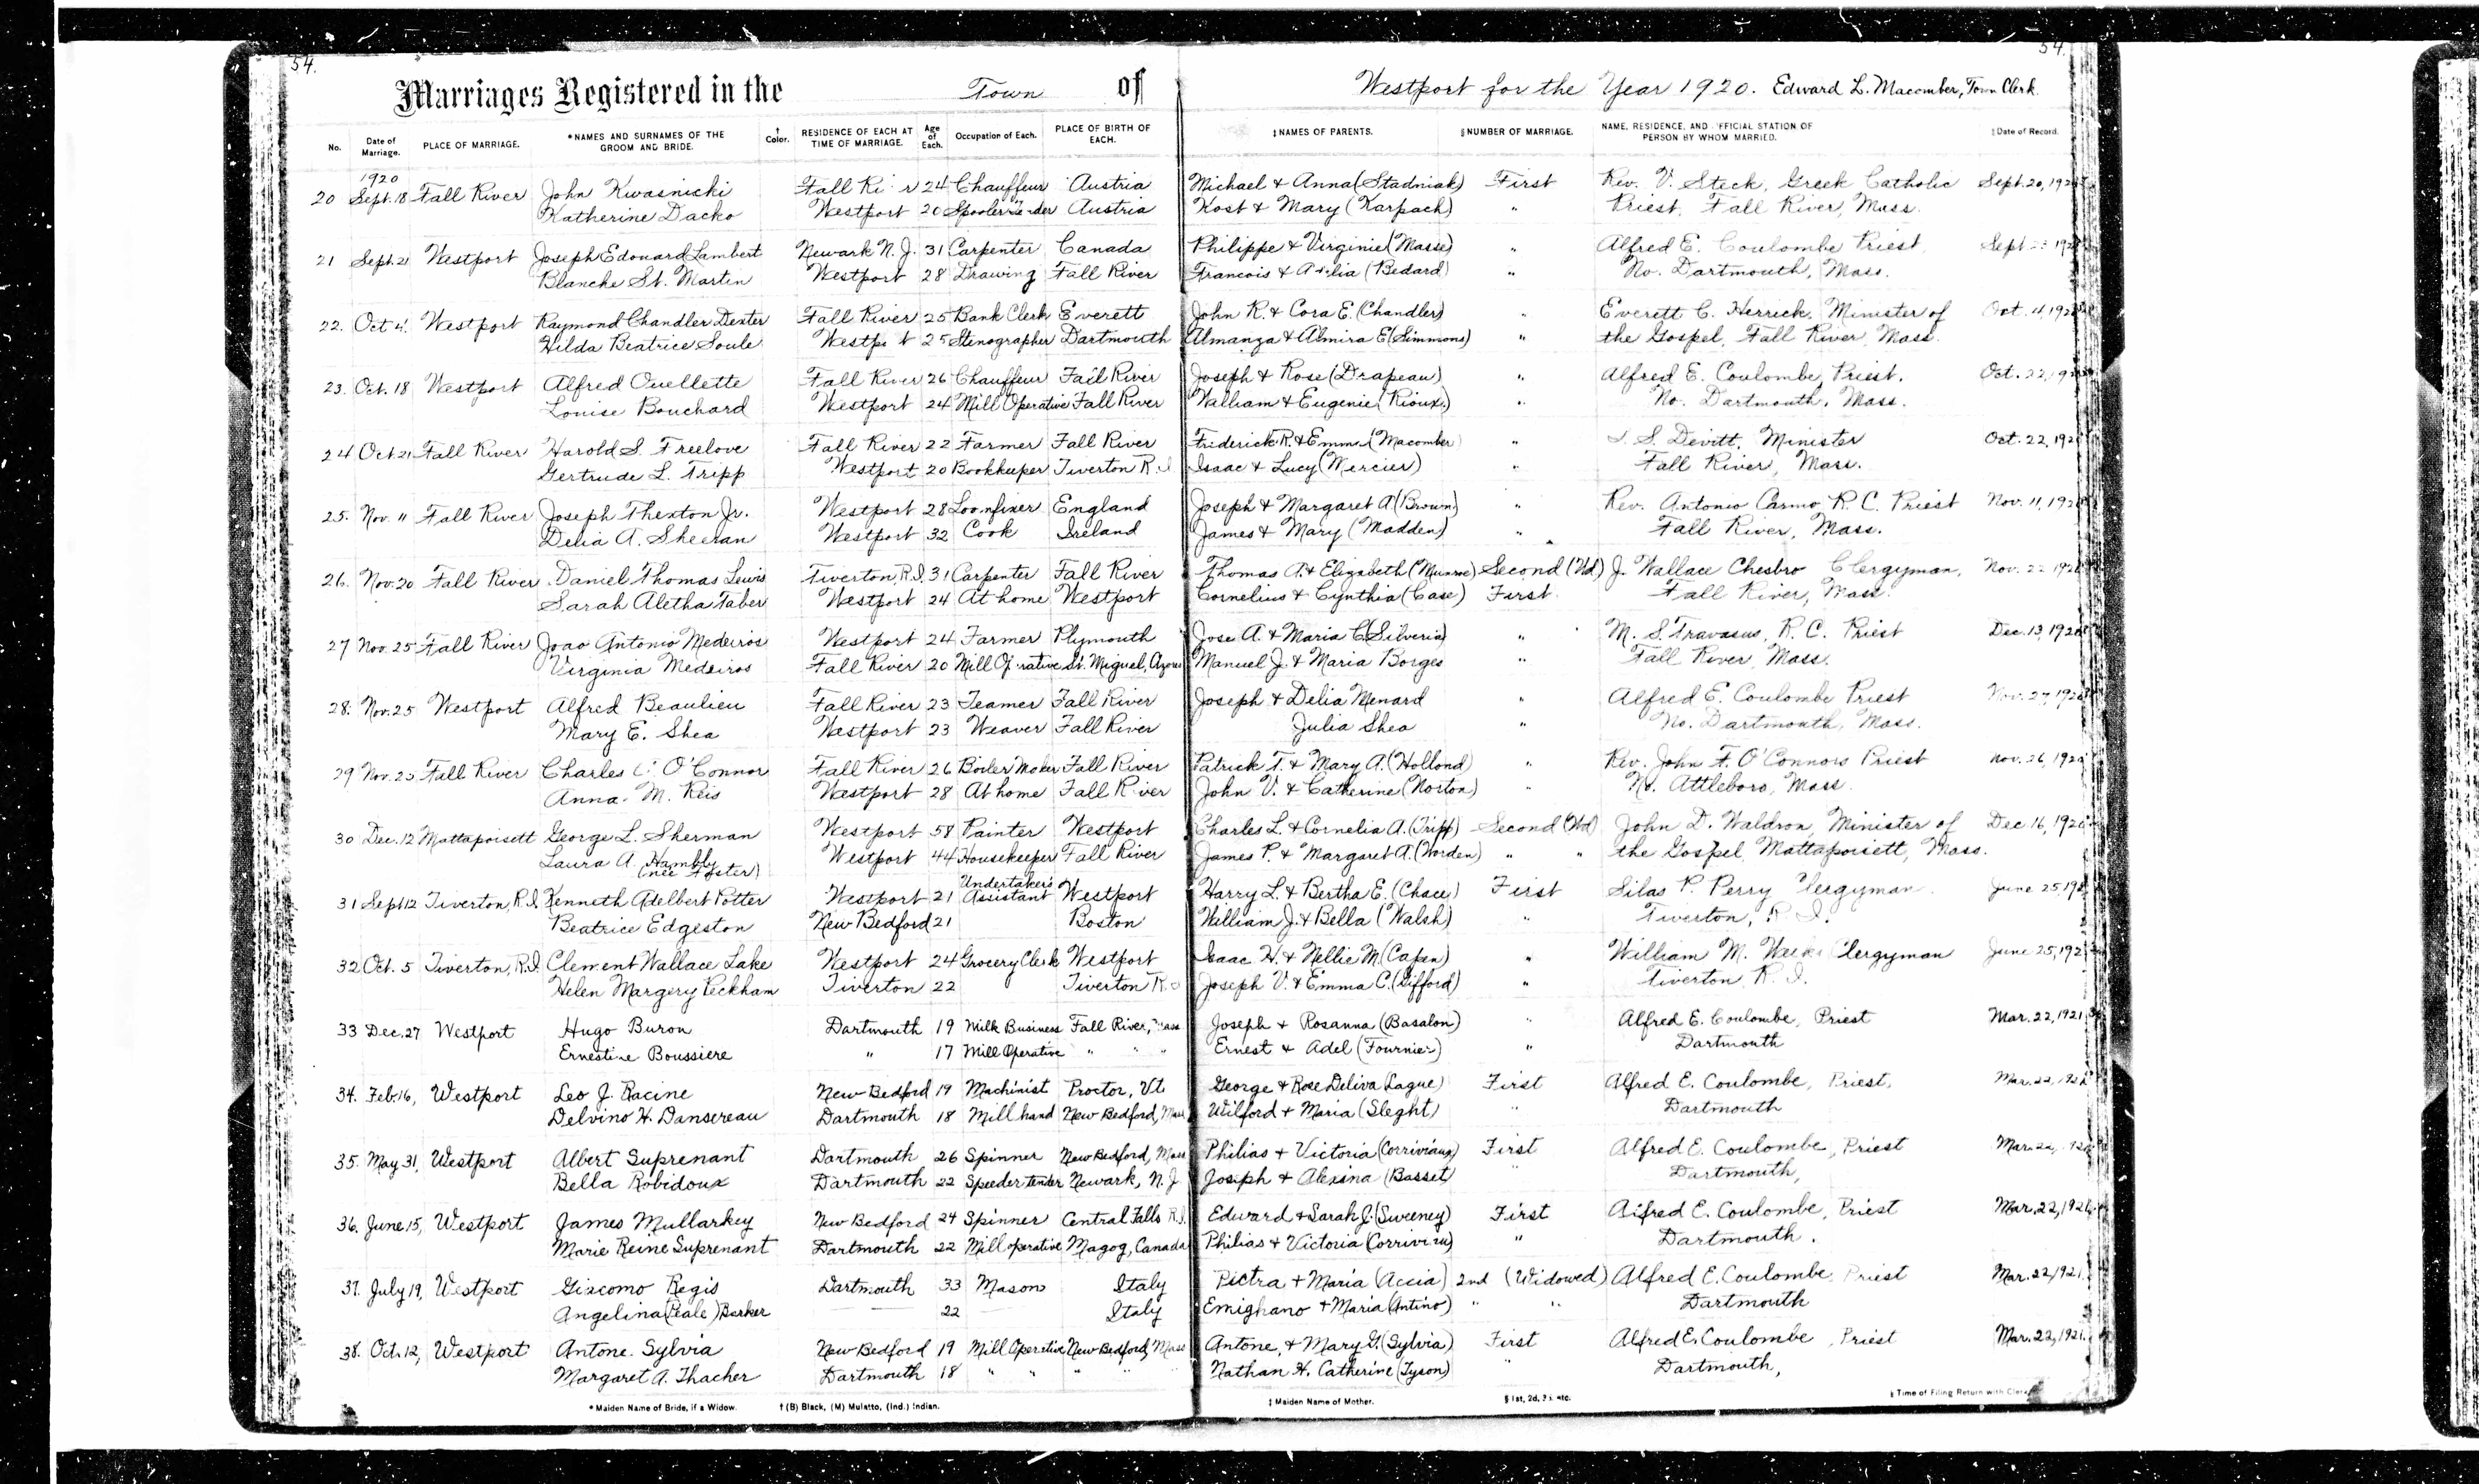 54. 54.
Marriages Registered in the Town of Westport for the Year 1920. Edward L. Macomber, Town Clerk.
No. Date of Marriage. PLACE OF MARRIAGE. *NAMES AND SURNAMES OF THE GROOM AND BRIDE. † Color. RESIDENCE OF EACH AT TIME OF MARRIAGE. Age of Each. Occupation of Each. PLACE OF BIRTH OF EACH. ‡NAMES OF PARENTS. §NUMBER OF MARRIAGE. NAME, RESIDENCE, AND OFFICIAL STATION OF PERSON BY WHOM MARRIED. Date of Record.
1920
20 Sept. 18 Fall River John Kwasnicki Fall River 24 Chauffeur Austria Michael & Anna (Stadniak) First Rev. V. Steck, Greek Catholic Sept. 20, 192
Katherine Dacko Westport 20 Spooler Tender Austria Kost & Mary (Karpach) " Priest, Fall River, Mass.
21 Sept. 21 Westport Joseph Edouard Lambert Newark N.J. 31 Carpenter Canada Philippe & Virginie (Masse) " Alfred E. Coulombe Priest Sept. 192
Blanche St. Martin Westport 28 Drawing Fall River Francois & (Bedard) " No. Dartmouth, Mass.
22. Oct 4. Westport Raymond Chandler Dexter Fall River 25 Bank Clerk Everett John R. & Cora E. (Chandler) " Everett C. Herrick, Minister of Oct. 4, 192
Hilda Beatrice Soule Westport 25 Stenographer Dartmouth Almanza & Almira E (Simmons) " the Gospel, Fall River, Mass.
23. Oct. 18 Westport Alfred Ouellette Fall River 26 Chauffeur Fall River Joseph & Rose (Drapeau) " Alfred E. Coulombe, Priest. Oct. 22, 192
Louise Bouchard Westport 24 Mill Operative Fall River William & Eugenie (Rioux) " No. Dartmouth, Mass.
24 Oct. 21 Fall River Harold S. Freelove Fall River 22 Farmer Fall River Frederick R. & Emma (Macomber) " S. Devitt, Minister Oct. 22, 192
Gertrude L. Tripp Westport 20 Bookkeeper Tiverton R.I. Isaac & Lucy (Mercier) " Fall River, Mass.
25. Nov. 11 Fall River Joseph Thexton Jr. Westport 28 Loomfixer England Joseph & Margaret A. (Brown) " Rev. Antonio Carmo R.C. Priest Nov. 11, 192
Delia A. Sheeran Westport 32 Cook Ireland James & Mary (Madden) " Fall River, Mass.
26. Nov. 20 Fall River Daniel Thomas Lewis Tiverton, R.I. 31 Carpenter Fall River Thomas A. & Elizabeth (Munroe) Second (Wd) J. Wallace Chesbro Clergyman, Nov. 22 192
Sarah Aletha Taber Westport 24 At home Westport Cornelius & Cynthia (Case) First. Fall River, Mass.
27 Nov. 25 Fall River Joao Antonio Medeiros Westport 24 Farmer Plymouth Jose A. & Maria C (Silveria) " M. S. Travasus, R.C. Priest Dec. 13, 192
Virginia Medeiros Fall River 20 Mill Operative St. Miguel, Azores Manuel J. & Maria Borges " Fall River, Mass.
28. Nov. 25 Westport Alfred Beaulieu Fall River 23 Teamer Fall River Joseph & Delia Menard " Alfred E. Coulombe Priest Nov. 27, 192
Mary E. Shea Westport 23 Weaver Fall River Julia Shea " No. Dartmouth, Mass.
29 Nov. 25 Fall River Charles O'Connor Fall River 26 Boiler Maker Fall River Patrick T. & Mary A. (Hollond) " Rev. John F. O'Connors Priest Nov. 26, 192
Anna M. Reis Westport 28 At home Fall River John V. & Catherine (Norton) " No. Attleboro, Mass.
30 Dec. 12 Mattapoisett George L. Sherman Westport 58 Painter Westport Charles L. & Cornelia A. (Tripp) Second (Wd) John D. Waldron, Minister of Dec 16, 192
Laura A. Hambly Westport 44 Housekeeper Fall River James P. & Margaret A. (Worden) " " the Gospel, Mattapoisett, Mass.
(née Foster)
31 Sept 12 Tiverton, R.I. Kenneth Adelbert Potter Westport 21 Undertaker's Assistant Westport Harry L. & Bertha E. (Chace) First Silas P. Perry Clergyman June 25 192
Beatrice Edgeston New Bedford 21 Boston William J. & Bella (Walsh) " Tiverton, R.I.
32 Oct. 5 Tiverton, R.I. Clement Wallace Lake Westport 24 Grocery Clerk Westport Isaac H. & Nellie M. (Capen) " William M. Clergyman June 25, 192
Helen Margery Peckham Tiverton 22 Tiverton R.I. Joseph V. & Emma C. (Gifford) " Tiverton R.I.
33 Dec. 27 Westport Hugo Buron Dartmouth 19 Milk Business Fall River, Mass Joseph + Rosanna (Basalon) " Alfred E. Coulombe, Priest Mar. 22, 1921
Ernestine Boussiere " 17 Mill Operative " " " Ernest & Adel (Fournier) " Dartmouth
34. Feb. 16, Westport Leo J. Racine New Bedford 19 Machinist Proctor, Vt George + Rose Deliva (Lague) First Alfred E. Coulombe, Priest, Mar. 22, 192
Delvino H. Dansereau Dartmouth 18 Mill hand New Bedford, Mass Wilford + Maria (Sleght) " Dartmouth
35. May 31, Westport Albert Suprenant Dartmouth 26 Spinner New Bedford, Mass Philias + Victoria (Corriviaux) First Alfred E. Coulombe, Priest Mar. 22, 192
Bella Robidoux Dartmouth 22 Speeder tender Newark, N.J Joseph + Alexina (Basset) " Dartmouth,
36. June 15, Westport James Mullarkey New Bedford 24 Spinner Central Falls R.I. Edward + Sarah J. (Sweeney) First Alfred E. Coulombe, Priest Mar. 22, 192
Marie Reine Suprenant Dartmouth 22 Mill operative Magog, Canada Philias + Victoria " Dartmouth.
37. July 19, Westport Giacomo Regis Dartmouth 33 Mason Italy Pietra + Maria (Accia) 2nd (Widowed) Alfred E. Coulombe, Priest Mar. 22, 1921
Angelina (Peale) Barker 22 Italy Emighano + Maria (Antino) " " Dartmouth
38. Oct. 12, Westport Antone Sylvia New Bedford 19 Mill Operative New Bedford, Mass Antone, & Mary G. (Sylvia) First Alfred E. Coulombe, Priest Mar. 22, 1921.
Margaret A. Thacher Dartmouth 18 " " " " Nathan H. Catherine (Tyson) " Dartmouth,
* Maiden Name of Bride, if a Widow. † (B) Black, (M) Mulatto, (Ind.) Indian. ‡ Maiden Name of Mother. § 1st, 2d, 3d, etc. Time of Filing Return with Clerk